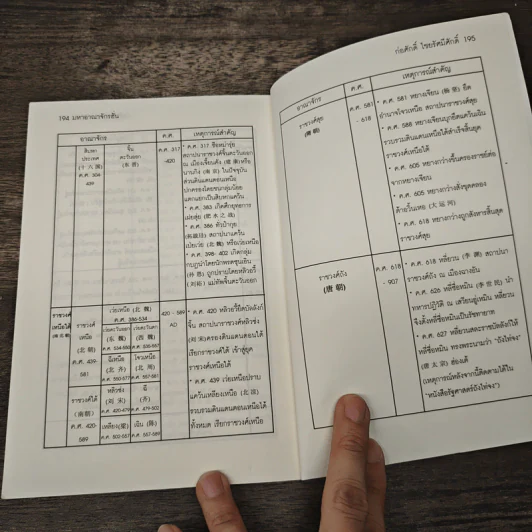 194 มหาอาณาจักรฮั่น
อาณาจักร
ค.ศ.
เหตุการณ์สำคัญ
สิบหก
ประเทศ
(十六国)
ค.ศ. 304-
439
จิ้น
ตะวันออก
(东晋)
ค.ศ. 317
-420
* ค.ศ. 317 ซือหม่ารุ่ย
สถาปนาราชวงศ์จิ้นตะวันออก
ณ เมืองเจี้ยนคัง (建康) หรือ
นานกิง (南京) ในปัจจุบัน
ส่วนดินแดนตอนเหนือ
ปกครองโดยชนกลุ่มน้อย
แตกแยกเป็นสิบหกแคว้น
* ค.ศ. 383 เกิดศึกยุทธการ
เฝยสุ่ย (淝水之战)
* ค.ศ. 386 ทั่วป๋ากุย
(拓跋珪) สถาปนาแคว้น
เป่ยเว่ย (北魏) หรือเว่ยเหนือ
* ค.ศ. 398-402 เกิดกลุ่ม
กบฏนำโดยนักพรตซุนเอิน
(孙恩) ถูกปราบโดยหลิวอวี้
(刘裕) แม่ทัพจิ้นตะวันออก
ราชวงศ์
เหนือใต้
(南北朝)
ราชวงศ์
เหนือ
(北朝)
ค.ศ. 439-
581
เว่ยเหนือ (北魏)
ค.ศ. 386-534
เว่ยตะวันออก
(东魏)
ค.ศ. 534-550
เว่ยตะวันตก
(西魏)
ค.ศ. 535-557
ฉีเหนือ
(北齐)
ค.ศ. 550-577
โจวเหนือ
(北周)
ค.ศ. 557-581
ราชวงศ์ใต้
(南朝)
ค.ศ. 420-
589
หลิวซ่ง
(刘宋)
ค.ศ. 420-479
ฉี
(齐)
ค.ศ. 479-502
เหลียง(梁)
ค.ศ. 502-557
เฉิน (陈)
ค.ศ. 557-589
420 - 589
AD
* ค.ศ. 420 หลิวอวี้ยึดบัลลังก์
จิ้น สถาปนาราชวงศ์หลิวซ่ง
(刘宋)ครองดินแดนตอนใต้
เรียกราชวงศ์ใต้ เข้าสู่ยุค
ราชวงศ์เหนือใต้
* ค.ศ. 439 เว่ยเหนือปราบ
แคว้นเหลียงเหนือ (北凉)
รวบรวมดินแดนตอนเหนือได้
ทั้งหมด เรียกราชวงศ์เหนือ
ก่อศักดิ์ ไชยรัศมีศักดิ์ 195
อาณาจักร
ค.ศ.
เหตุการณ์สำคัญ
ราชวงศ์สุย
(隋朝)
ค.ศ. 581
- 618
* ค.ศ. 581 หยางเจียน (杨坚) ยึด
อำนาจโจวเหนือ สถาปนาราชวงศ์สุย
* ค.ศ. 588 หยางเจียนบุกยึดแคว้นเฉิน
รวบรวมดินแดนเหนือใต้สำเร็จสิ้นสุดยุค
ราชวงศ์เหนือใต้
* ค.ศ. 605 หยางกว่างขึ้นครองราชย์ต่อ
จากหยางเจียน
* ค.ศ. 605 หยางกว่างสั่งขุดคลอง
ต้ายวิ่นเหอ (大运河)
* ค.ศ. 618 หยางกว่างถูกสังหารสิ้นสุด
ราชวงศ์สุย
ราชวงศ์ถัง
(唐朝)
ค.ศ. 618
- 907
* ค.ศ. 618 หลี่ยาน (李渊) สถาปนา
ราชวงศ์ถัง ณ เมืองฉางอัน
* ค.ศ. 626 หลี่ซื่อหมิน (李世民) นำ
ทหารปฏิวัติ ณ เสวียนอู่เหมิน หลี่ยวน
จึงตั้งหลี่ซื่อหมินเป็นรัชทายาท
* ค.ศ. 627 หลี่ยวนสละราชบัลลังก์ให้
หลี่ซื่อหมิน ทรงพระนามว่า "ถังไท่จง"
(唐太宗) ฮ่องเต้
(เหตุการณ์หลังจากนี้ติดตามได้ใน
"หนังสือรัฐศาสตร์ถังไท่จง")